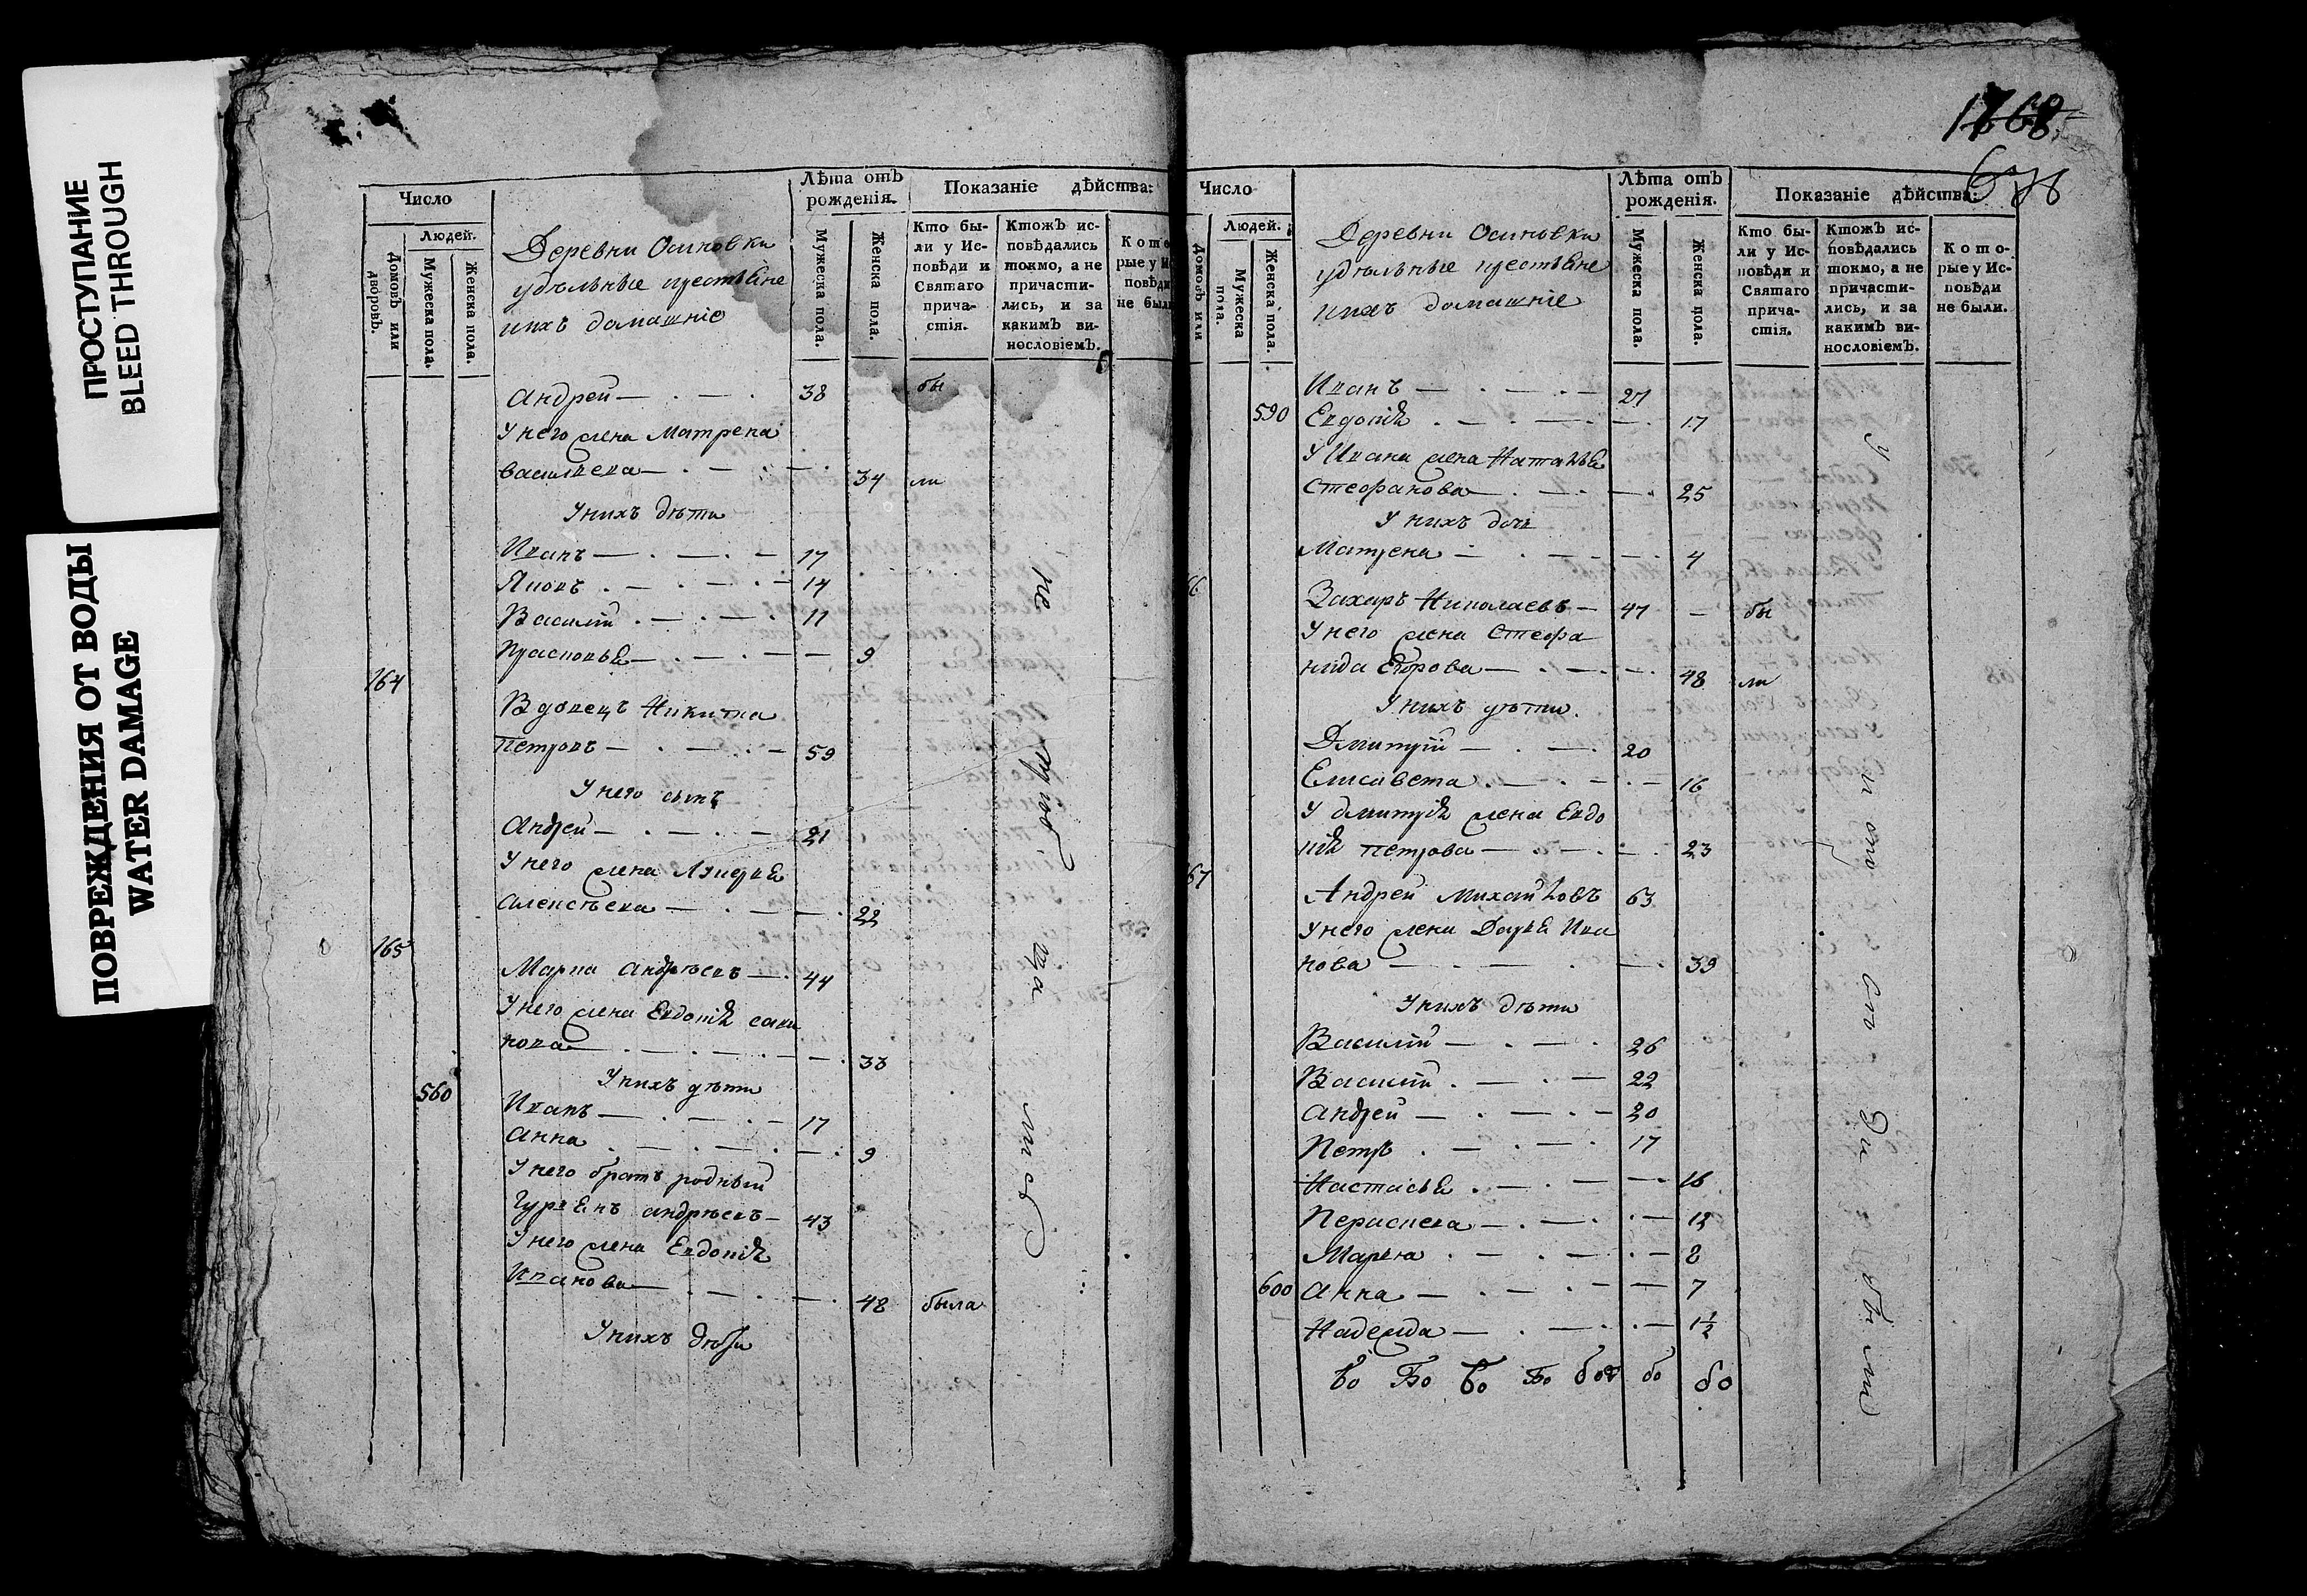 ПРОСТУПАНИЕ
BLEED THROUGH
ПОВРЕЖДЕНИЯ ОТ ВОДЫ
WATER DAMAGE
Число
Людей.
Домовъ или дворовъ.
Мужеска пола.
Женска пола.
Деревни Осиновки
удѣльные крестьяне
ихъ домашніе
Лѣта отъ рожденія.
Мужеска пола.
Женска пола.
Показаніе дѣйства:
Кто были у Исповѣди и Святаго причастія.
Ктожъ исповѣдались токмо, а не причастились, и за какимъ винословіемъ.
Андрей 38 бы
У него жена Матрена
Васильева 34 ли
У нихъ дѣти
Иванъ 17
Яковъ 14
Василій 11
Прасковья 9
164
Вдовецъ Никита
Петровъ 59
У него сынъ
Андрей 21
У него жена
Алексѣева 22
165
Марка Андрѣевъ 44
У него жена Евдокія
нова 33
У нихъ дѣти
560
Иванъ 17
Анна 9
У него братъ родный
Андрѣевъ 43
У него жена Евдокія
Иванова 48 была
У нихъ дѣти
Число
Людей.
Домовъ или
Мужеска пола.
Женска пола.
Деревни Осиновки
удѣльные крестьяне
ихъ домашніе
Лѣта отъ рожденія.
Мужеска пола.
Женска пола.
Показаніе дѣйства:
Кто были у Исповѣди и Святаго причастія.
Ктожъ исповѣдались токмо, а не причастились, и за какимъ винословіемъ.
Которые у Исповѣди не были.
Иванъ 27
590 Евдокія 17
У Ивана жена Наталья
Стефанова 25
У нихъ дочь
Матрена 4
66
Захаръ Николаевъ 47 бы
У него жена Стефа
нида Егорова 48 ли
У нихъ дѣти
Дмитрій 20
Елисавета 16
У Дмитрія жена Евдо
кія Петрова 23
67
Андрей Михайловъ 63
У него жена Дарья Ива
нова 39
У нихъ дѣти
Василій 26
Василій 22
Андрей 20
Петръ 17
Настасья 16
Пераскева 12
Марья 8
600 Анна 7
Надежда 1½